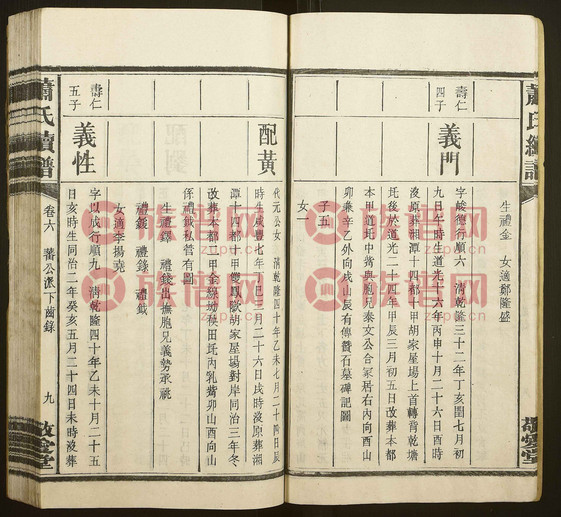 蕭氏續譜
敬愛堂
生禮金 女適鄭隆盛
壽仁四子
義門
字峻德行順六 清乾隆三十二年丁亥閏七月初
九日午時生道光十六年丙申十月二十六日酉時
沒原葬湘潭十四都十甲胡家屋場上首轉背乾塘
圫後於道光二十四年甲辰三月初五日改葬本都
本甲道圫中嘴與胞兄泰文公合冢居右內向酉山
卯兼辛乙外向戌山辰有傳贊石墓碑記圖
子五
女一
配黃
代元公女 清乾隆四十年乙未七月二十四日辰
時生咸豐七年丁巳三月二十六日戌時沒原葬湘
潭十四都十甲雙鳳嶽胡家屋場對岸同治三年冬
改葬本都二甲金線坳秧田圫內乳嘴卯山酉向山
係禮鉞私管有圖
生禮鐸 禮錟出撫胞兄義勢承祧
禮錢 禮錄 禮鉞
女適李揚堯
壽仁五子
義性
字以成行順九 清乾隆四十年乙未十月二十五
日亥時生同治二年癸亥五月二十四日未時沒葬
蕭氏續譜
卷六 蕃公派下齒錄
九
敬愛堂
族譜网
zupu.cn